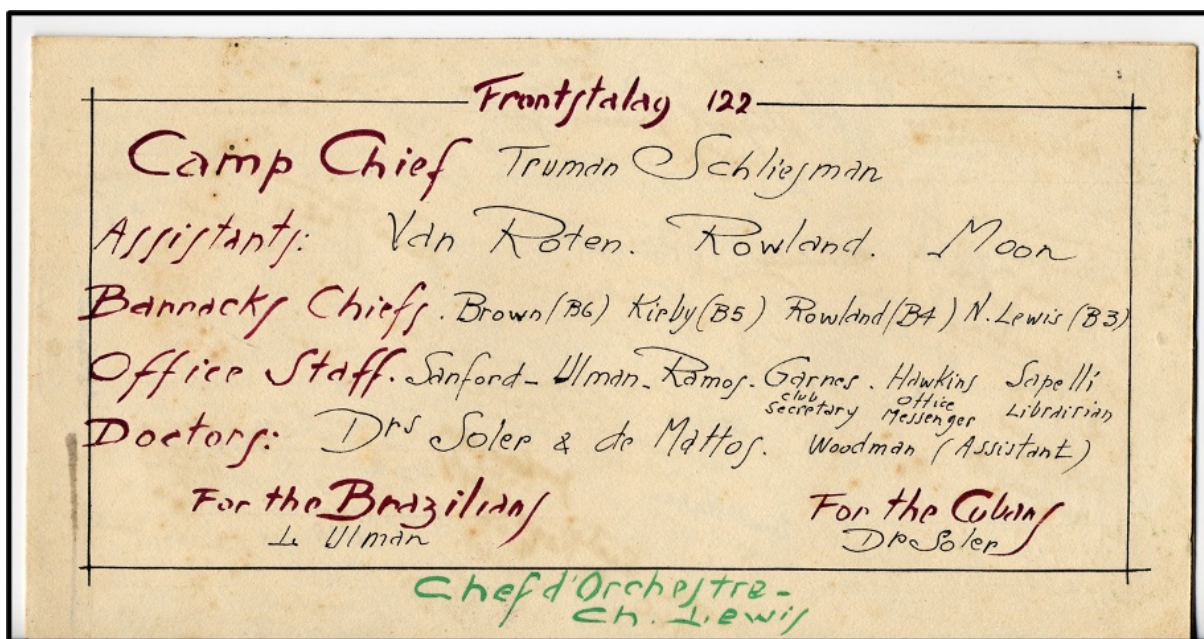 Frontstalag 122
Camp Chief Truman Schliesman
Assistants: Van Roten. Rowland. Moon
Barracks Chiefs. Brown (B6) Kirby (B5) Rowland (B4) N. Lewis (B3)
Office Staff. Sanford - Ulman - Ramos. Garnes. Hawkins Sapelli
club Secretary Office Messenger Librairian
Doctors: Drs Soler & de Mattos. Woodman (Assistant)
For the Brazilians For the Cubans
L Ulman Dr Soler
Chef d'Orchestre -
Ch. Lewis